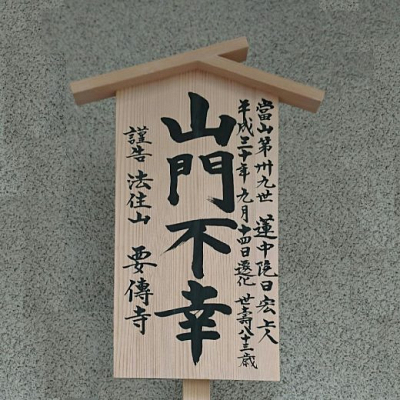 當山第卅九世 蓮中院日宏上人
平成三十年 九月 十四日遷化 世壽八十三歳
山門不幸
謹告 法住山 要傳寺